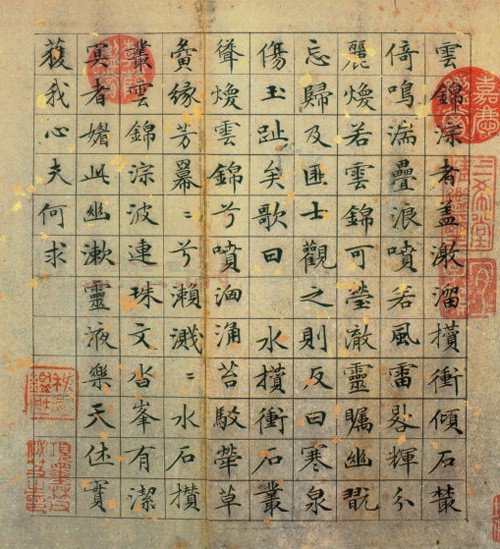 雲錦淙者盖激溜攢衝傾石藂
倚鳴湍疊浪噴若風雷輝分
麗煥若雲錦可瑩澈靈矚幽翫
忘歸及匪士觀之則反曰寒泉
傷玉趾矣歌曰 水攢衝石叢
聳煥雲錦兮噴洶涌苔駁犖草
夤緣芳羃〻兮瀨濺〻水石攢
叢雲錦淙波連珠文沓峯有潔
冥者媚此幽漱靈液樂天休實
獲我心夫何求
三希堂
項墨林父